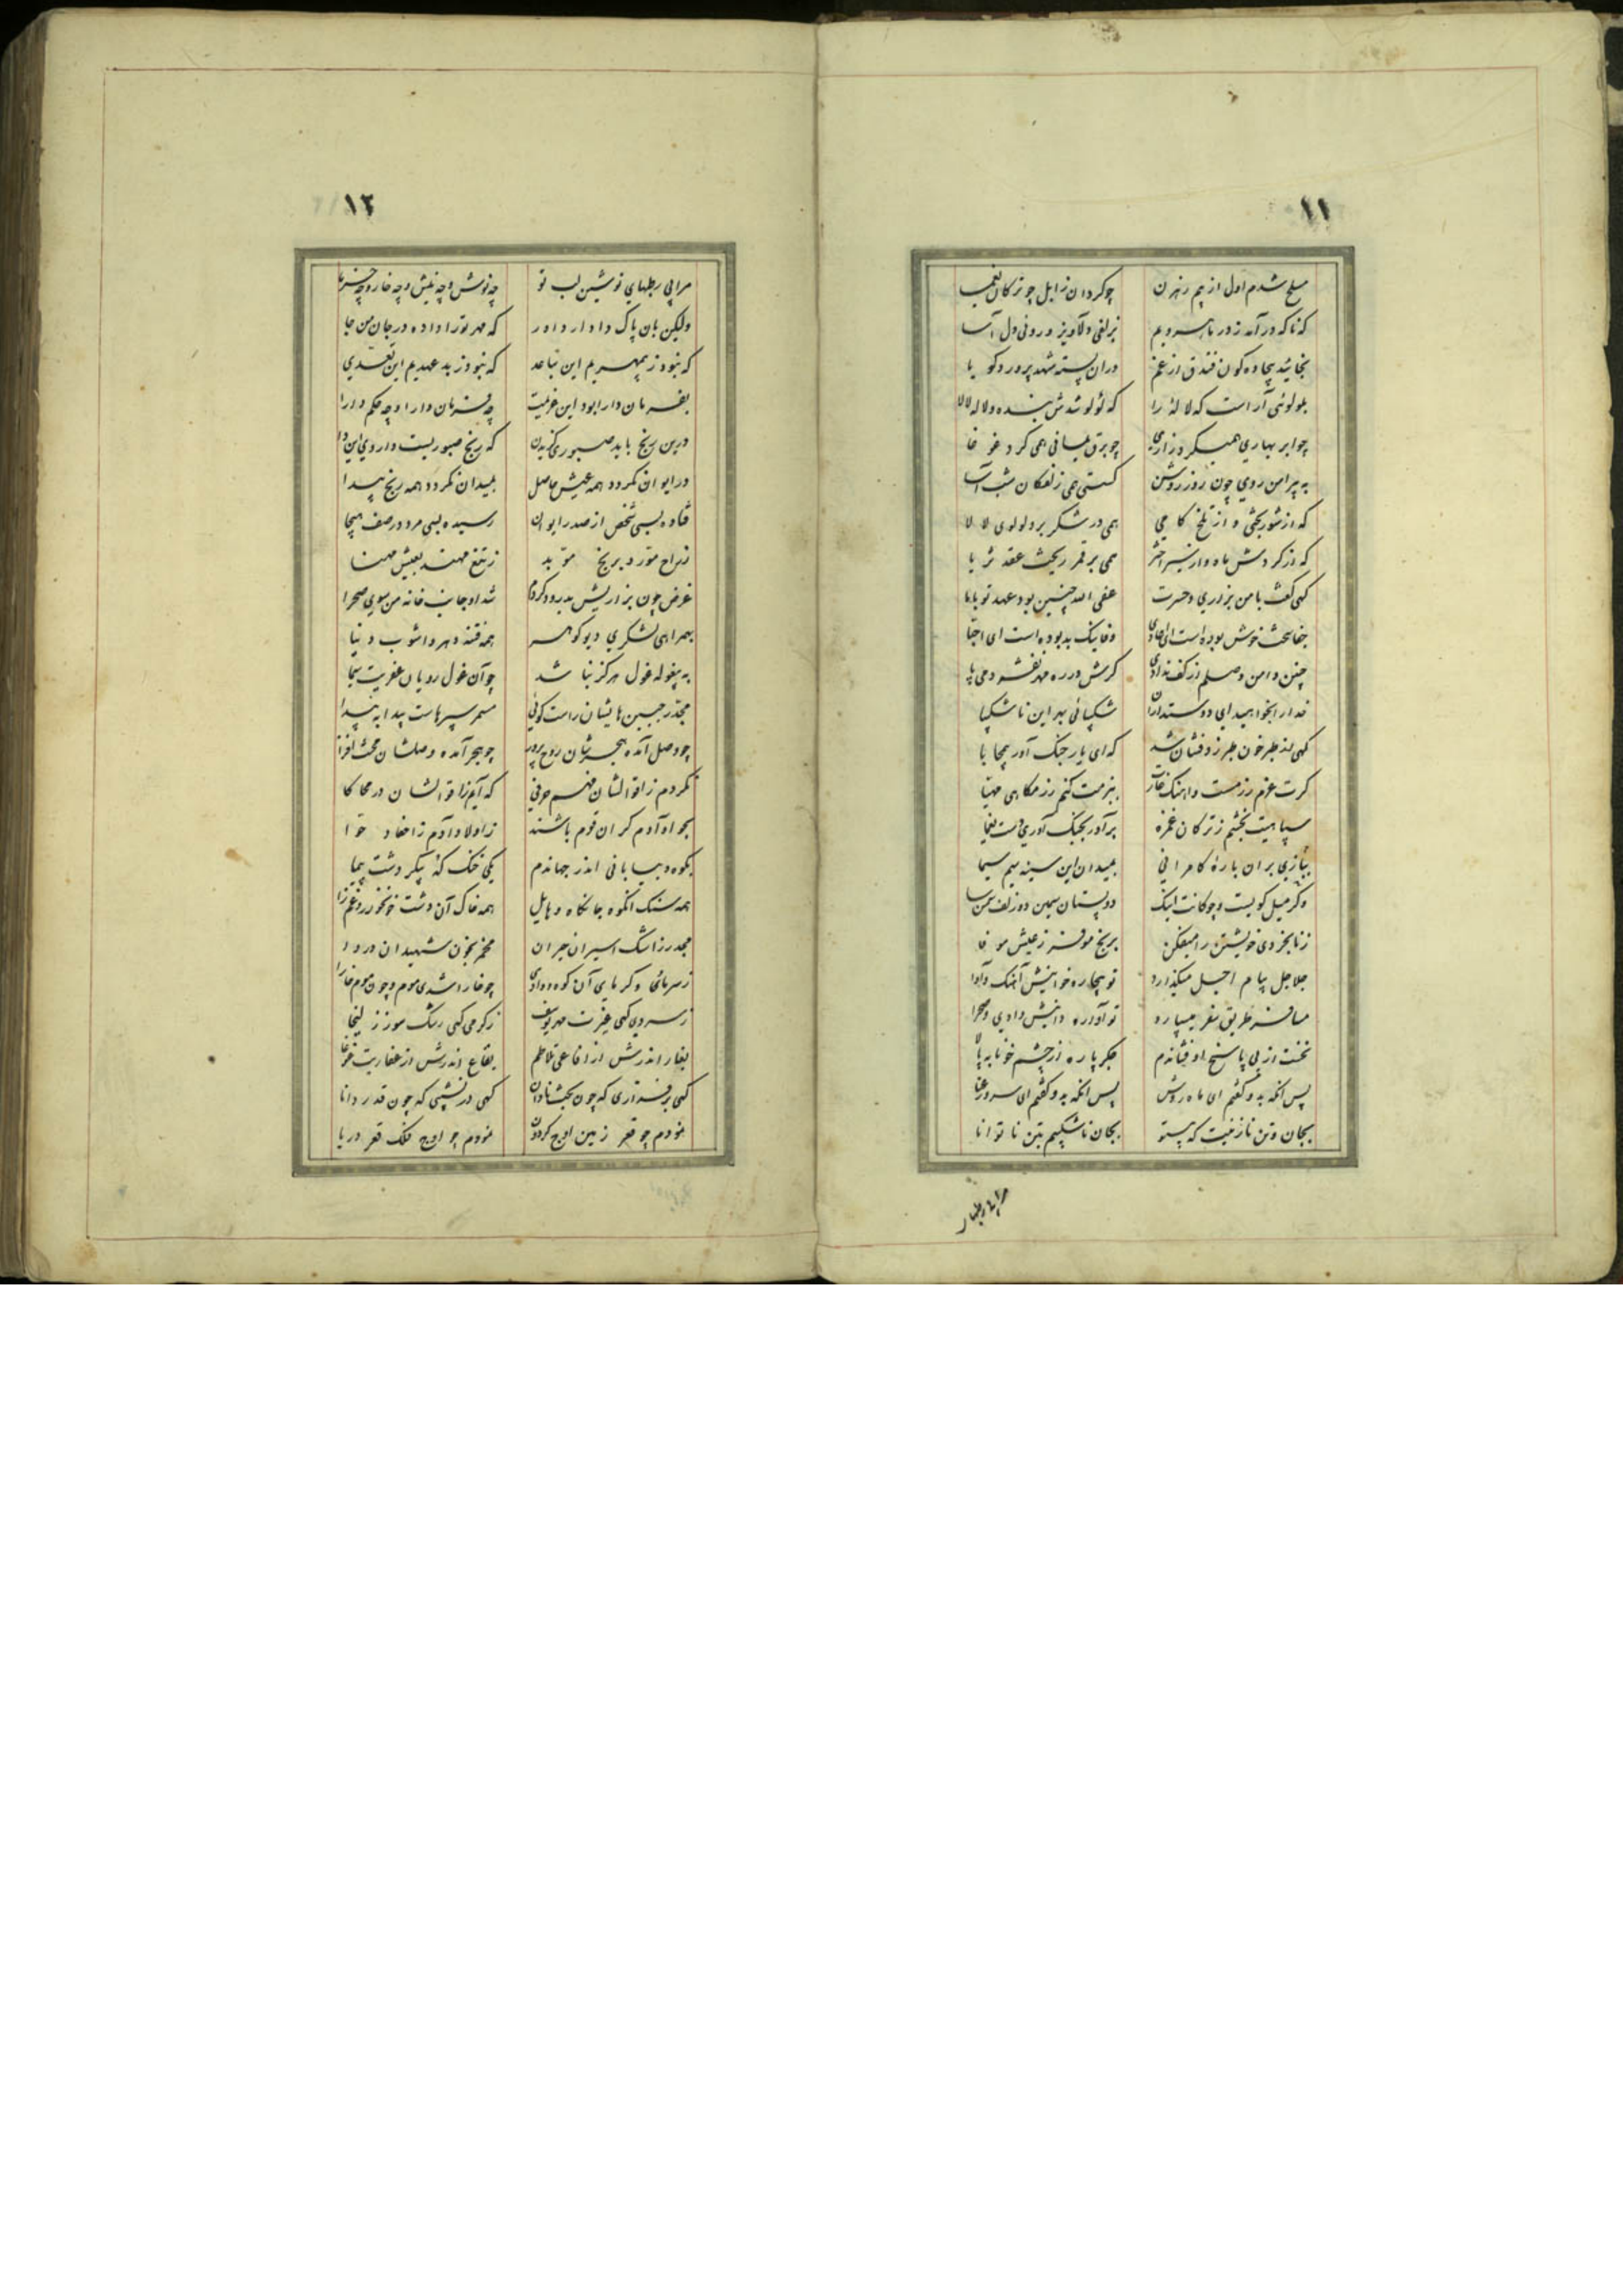 ١١
مسلح شدم اول از بیم رهزن چو گردان زابل چو ترکان یغما
که ناگه درآمد ز در ماه سرو بزلفی دلاویز و روئی دل آسا
بخائید بیجاده گون فندق از غم در ان پسته شهد پرورد گویا
بلولوئی آراست که لاله را که لولو شدش بنده و لاله لالا
چو ابر بهاری همیکرد زاری چو برق یمانی همی کرد غوغا
به پیرامن روی چون روز روشن گسستی همی زلفکان شب آسا
که از شور بختی و از تلخ کامی همی در شکر برد لولوی لالا
که از گردش ماه و از سیر اختر همی بر قمر ریخت عقد ثریا
گهی گفت با من بزاری و حسرت عفی الله چنین بود عهد تو با ما
جفا سخت خوش بوده است ای وفایک بد بوده است ای احبا
چنین دامن وصلم از کف ندادی گرش در ره مهر نفشردمی پا
خدا را نخواهید ای دوستداران شکیبائی بر این ناشکیبا
گهی شد که ای یار جنگ آور
گرت عزم رزمست و اهنگ غارت ببزمت کنم رزمگاهی مهیا
سپاهیت بخشم ز ترکان غمزه برآور بجنگ آوری دست یغما
بیازی بران باره کامرانی بمیدان این سینه سیم سیما
وگر میل گویست و چوگانت اینک دو پستان سیمین دو زلف سمن سا
ز نابخردی خویشتن را میفکن برنج موفر ز عیش موفا
جلاجل پیام اجل میگذارد تو بیچاره خوانیش آهنگ و آوا
مسافر طریق سفر میسپارد تو آواره دانیش وادی و صحرا
نخست از پی پاسخ او فشاندم جگر پاره از چشم خونابه پالا
پس انکه بدو گفتم ای ماه روشن پس انکه بدو گفتم ای سرو رعنا
بجان و تن نازنینت که بیتو بجان ناشکیبم بتن ناتوانا
١٢
مرا بی رطبهای نوشین لب تو چه نوش و چه نیش و چه خار و چه خرما
ولیکن بان پاک دادار داور که مهر تو را داده در جان من جا
که نبود ز بیمهریم این تباعد که نبود ز بد عهدیم این تعدی
بفرمان دارا بود این عزیمت چه فرمان دارا و چه حکم دارا
درین رنج باید صبوری گزیدن که رنج صبوریست داروی این دا
در ایوان نگردد همه عیش حاصل بمیدان نگردد همه رنج پیدا
فتاده بسی شخص از صدر ایوان رسیده بسی مرد در صف هیجا
مورد برنج موبد ز تیغ مهند بعیش مهنا
غرض چون بزاریش بدرود کردم شد او جانب خانه من سوی صحرا
بهمراهی لشکری دیو گوهر همه فتنه دهر و اشوب دنیا
به بیغوله غول هرگز نباشد چو آن غول رویان عفریت سیما
مجدر جبین هایشان راست گوئی
چو وصل آمده هجرشان روح پرور چو هجر آمده وصلشان محنت افزا
نکردم ز اقوالشان فهم حرفی که آیم ز اقوالشان در محاکا
بجو آدم گر ان قوم باشند ز اولاد آدم ز احفاد حوا
بکوه و بیابانی اندر جهاندم یکی خنگ که پیکر دشت پیما
همه سنگ انکوه جانکاه و هایل همه خاک آن دشت خونخوار و غمزا
مجدر ز اشک اسیران حیران مخمر بخون شهیدان دروا
ز سرمای و گرمای آن کوه و وادی چو خارا شدی موم و چون موم خارا
ز سردی گهی غیرت مهر یوسف ز گرمی گهی رشک سوز زلیخا
بغار اندرش از افاعی تلاطم بقاع اندرش از عفاریت غوغا
گهی بر فرازی که چون بخت نادان گهی در نشیبی که چون قدر دانا
نمودم چو قعر زمین اوج گردون نمودم چو اوج فلک قعر دریا